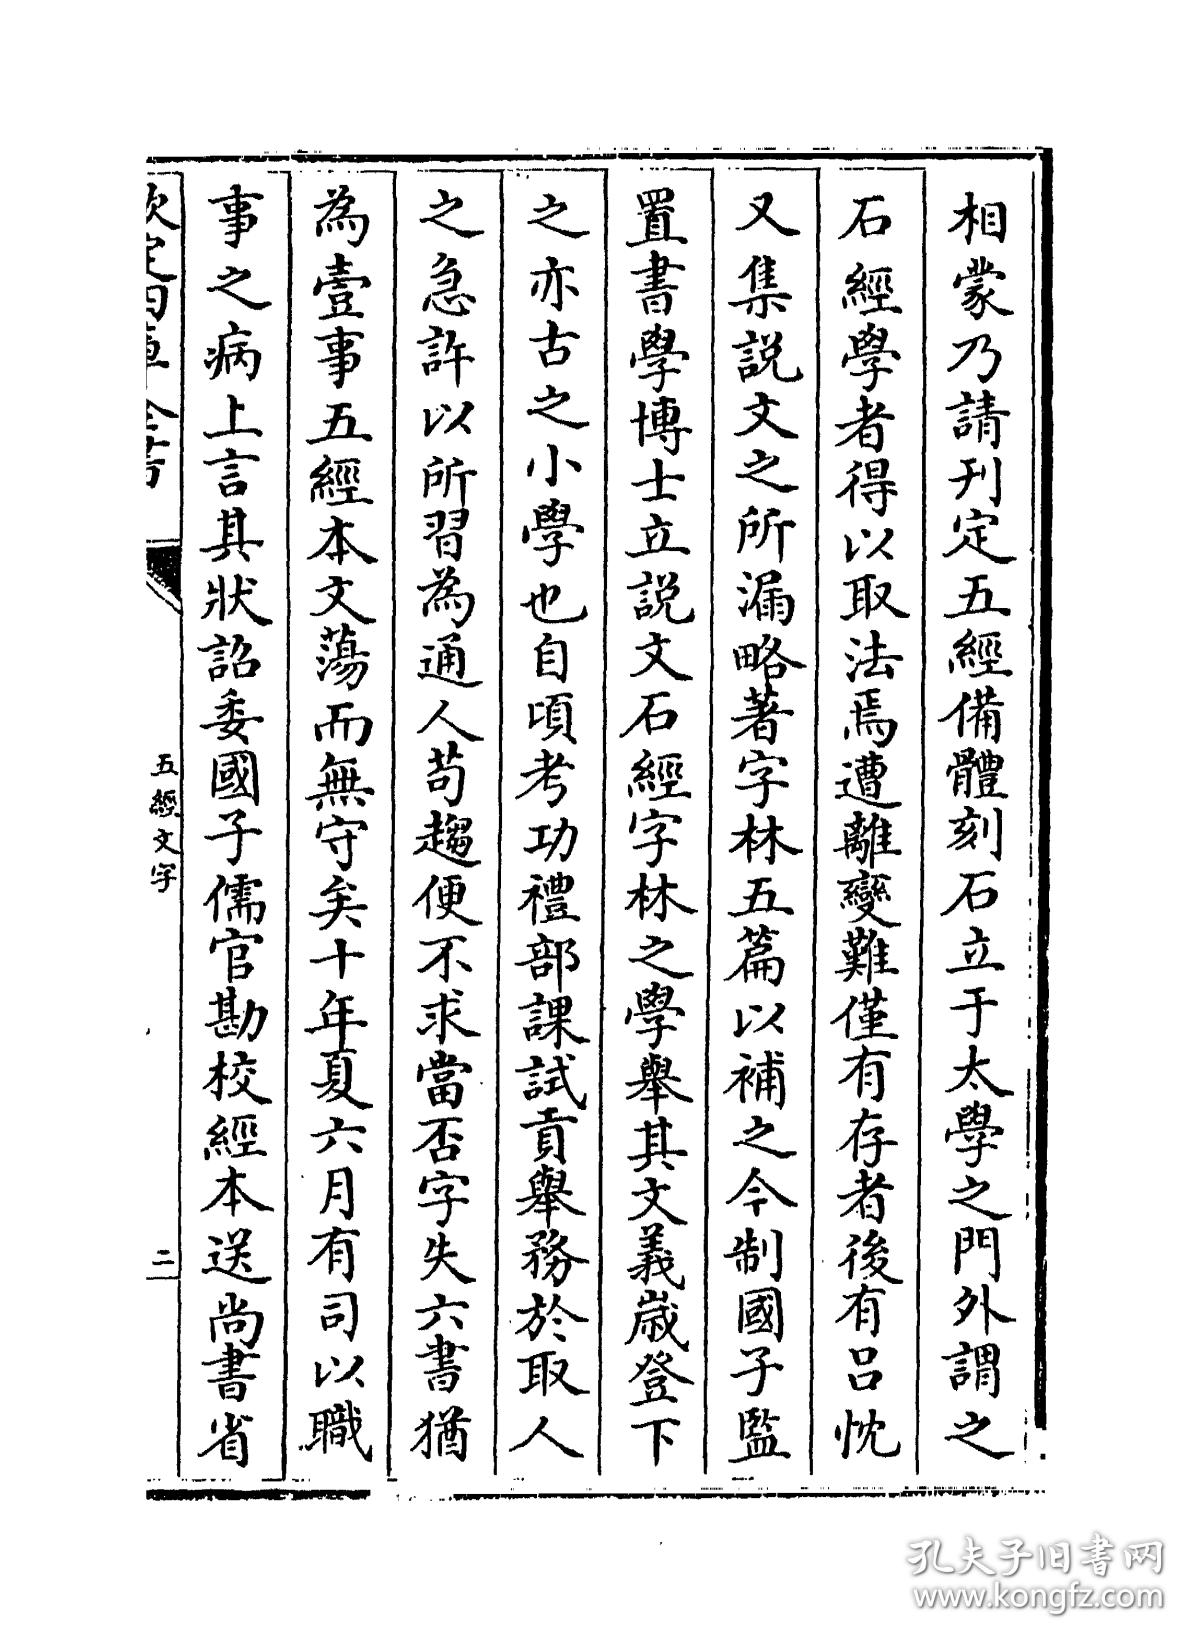 相蒙乃請刊定五經備體刻石立于太學之門外謂之
石經學者得以取法焉遭離變難僅有存者後有呂忱
又集説文之所漏略著字林五篇以補之今制國子監
置書學博士立説文石經字林之學舉其文義嵗登下
之亦古之小學也自頃考功禮部課試貢舉務於取人
之急許以所習為通人苟趨便不求當否字失六書猶
為壹事五經本文蕩而無守矣十年夏六月有司以職
事之病上言其狀詔委國子儒官勘校經本送尚書省
欽定四庫全書
五經文字
二
孔夫子旧书网
www.kongfz.com